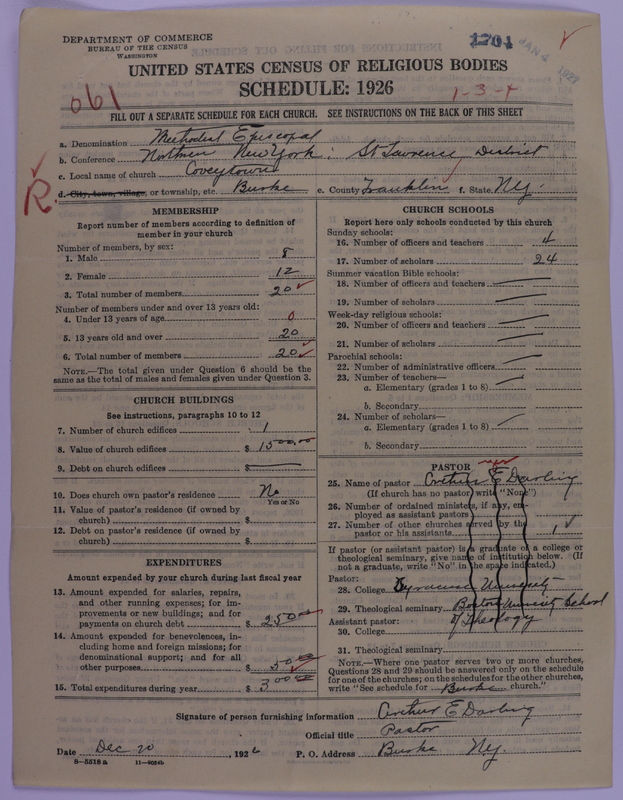 DEPARTMENT OF COMMERCE
BUREAU OF THE CENSUS
WASHINGTON
1704
JAN 4 1927
UNITED STATES CENSUS OF RELIGIOUS BODIES
SCHEDULE: 1926
061
1-3-4
FILL OUT A SEPARATE SCHEDULE FOR EACH CHURCH. SEE INSTRUCTIONS ON THE BACK OF THIS SHEET
a. Denomination Methodist Episcopal
b. Conference Northern New York: St Lawrence District
c. Local name of church Coveytown
R.
d. City, town, village, or township, etc. Burke e. County Franklin f. State Ny.
MEMBERSHIP
Report number of members according to definition of member in your church
Number of members, by sex:
1. Male 8
2. Female 12
3. Total number of members 20
Number of members under and over 13 years old:
4. Under 13 years of age 0
5. 13 years old and over 20
6. Total number of members 20
NOTE.—The total given under Question 6 should be the same as the total of males and females given under Question 3.
CHURCH BUILDINGS
See instructions, paragraphs 10 to 12
7. Number of church edifices 1
8. Value of church edifices $ 1500.00
9. Debt on church edifices $
10. Does church own pastor's residence No
Yes or No
11. Value of pastor's residence (if owned by church) $
12. Debt on pastor's residence (if owned by church) $
EXPENDITURES
Amount expended by your church during last fiscal year
13. Amount expended for salaries, repairs, and other running expenses; for improvements or new buildings; and for payments on church debt $ 250.00
14. Amount expended for benevolences, including home and foreign missions; for denominational support; and for all other purposes $ 50.00
15. Total expenditures during year $ 300.00
CHURCH SCHOOLS
Report here only schools conducted by this church
Sunday schools:
16. Number of officers and teachers 4
17. Number of scholars 24
Summer vacation Bible schools:
18. Number of officers and teachers
19. Number of scholars
Week-day religious schools:
20. Number of officers and teachers
21. Number of scholars
Parochial schools:
22. Number of administrative officers
23. Number of teachers—
a. Elementary (grades 1 to 8)
b. Secondary
24. Number of scholars—
a. Elementary (grades 1 to 8)
b. Secondary
PASTOR
25. Name of pastor Arthur E Darling
(If church has no pastor, write "None")
26. Number of ordained ministers, if any, employed as assistant pastors
27. Number of other churches served by the pastor or his assistants 1
If pastor (or assistant pastor) is a graduate of a college or theological seminary, give name of institution below. (If not a graduate, write "No" in the space indicated.)
Pastor:
28. College Syracuse University
29. Theological seminary Boston University School of Theology
Assistant pastor:
30. College
31. Theological seminary
NOTE.—Where one pastor serves two or more churches, Questions 28 and 29 should be answered only on the schedule for one of the churches; on the schedules for the other churches, write "See schedule for Burke church."
Signature of person furnishing information Arthur E Darling
Official title Pastor
Date Dec 20, 1926 P. O. Address Burke Ny.
8-5518 a